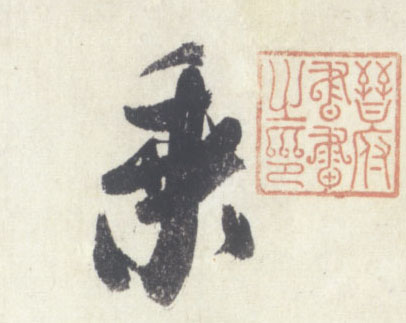 晉府
書畫
之印
乘